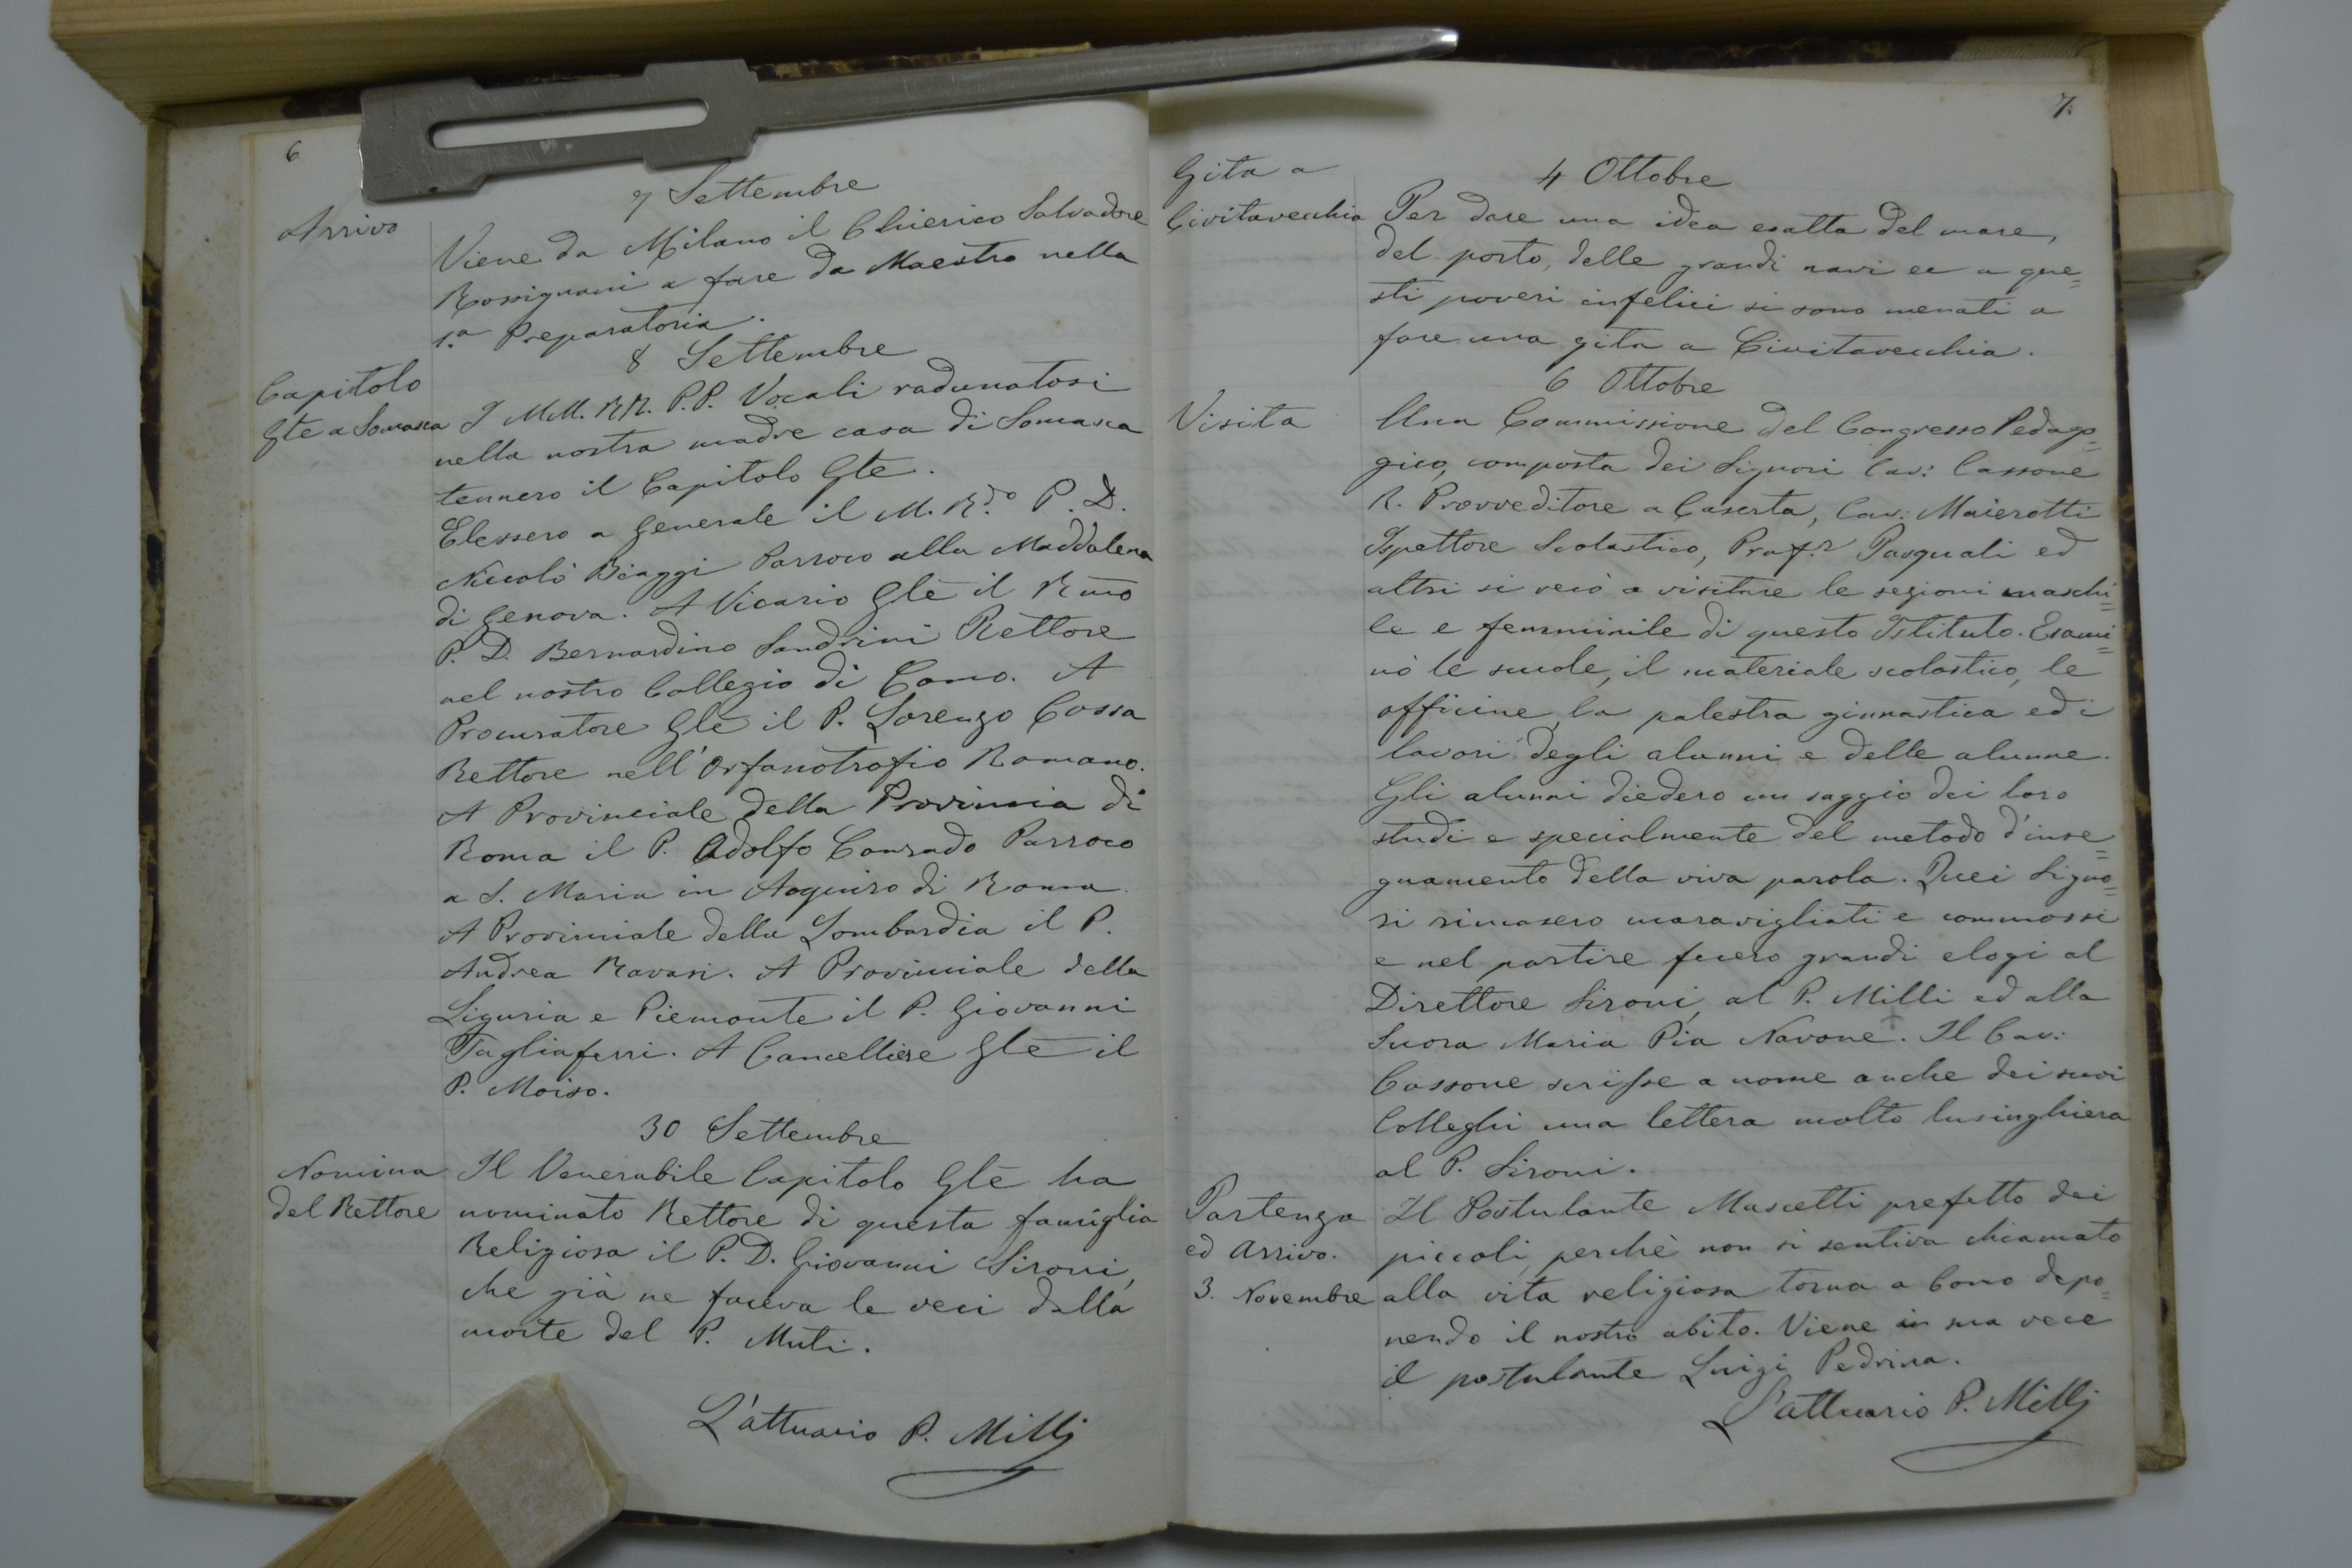 6
7 Settembre
Arrivo
Viene da Milano il Chierico Salvadore
Rossignani a fare da Maestro nella
1.a Preparatoria.
8 Settembre
Capitolo
Gle a Somasca
I MM. RR. P.P. Vocali radunatosi
nella nostra madre casa di Somasca
tennero il Capitolo Gle.
Elessero a Generale il M. R.do P. D.
Niccolò Biaggi Parroco alla Maddalena
di Genova. A Vicario Gle il Rmo
P. D. Bernardino Sandrini Rettore
nel nostro Collegio di Como. A
Procuratore Gle il P. Lorenzo Cossa
Rettore nell'Orfanotrofio Romano.
A Provinciale della Provincia di
Roma il P. Adolfo Conrado Parroco
a S. Maria in Aquiro di Roma.
A Provinciale della Lombardia il P.
Andrea Ravasi. A Provinciale della
Liguria e Piemonte il P. Giovanni
Tagliaferri. A Cancelliere Gle il
P. Moiso.
30 Settembre
Nomina
del Rettore
Il Venerabile Capitolo Gle ha
nominato Rettore di questa famiglia
Religiosa il P. D. Giovanni Sironi,
che già ne faceva le veci dalla
morte del P. Muti.
L'attuario P. Milli
7.
4 Ottobre
Gita a
Civitavecchia
Per dare una idea esatta del mare,
del porto, delle grandi navi ec a que=
sti poveri infelici si sono menati a
fare una gita a Civitavecchia.
6 Ottobre
Visita
Una Commissione del Congresso Pedago=
gico, composta dei Signori Cav: Cassone
R. Provveditore a Caserta, Cav: Maierotti
Ispettore Scolastico, Prof.r Pasquali ed
altri si recò a visitare le sezioni maschi=
le e femminile di questo Istituto. Esami=
nò le scuole, il materiale scolastico, le
officine, la palestra ginnastica ed i
lavori degli alunni e delle alunne.
Gli alunni diedero un saggio dei loro
studi e specialmente del metodo d'inse=
gnamento della viva parola. Quei Signo=
ri rimasero maravigliati e commossi
e nel partire fecero grandi elogi al
Direttore Sironi, al P. Milli ed alla
Suora Maria Pia Navone. Il Cav:
Cassone scrisse a nome anche dei suoi
Colleghi una lettera molto lusinghiera
al P. Sironi.
Partenza
ed Arrivo.
3. Novembre
Il Postulante Mascetti prefetto dei
piccoli, perchè non si sentiva chiamato
alla vita religiosa torna a Como depo=
nendo il nostro abito. Viene in sua vece
il postulante Luigi Pedrina.
L'attuario P. Milli